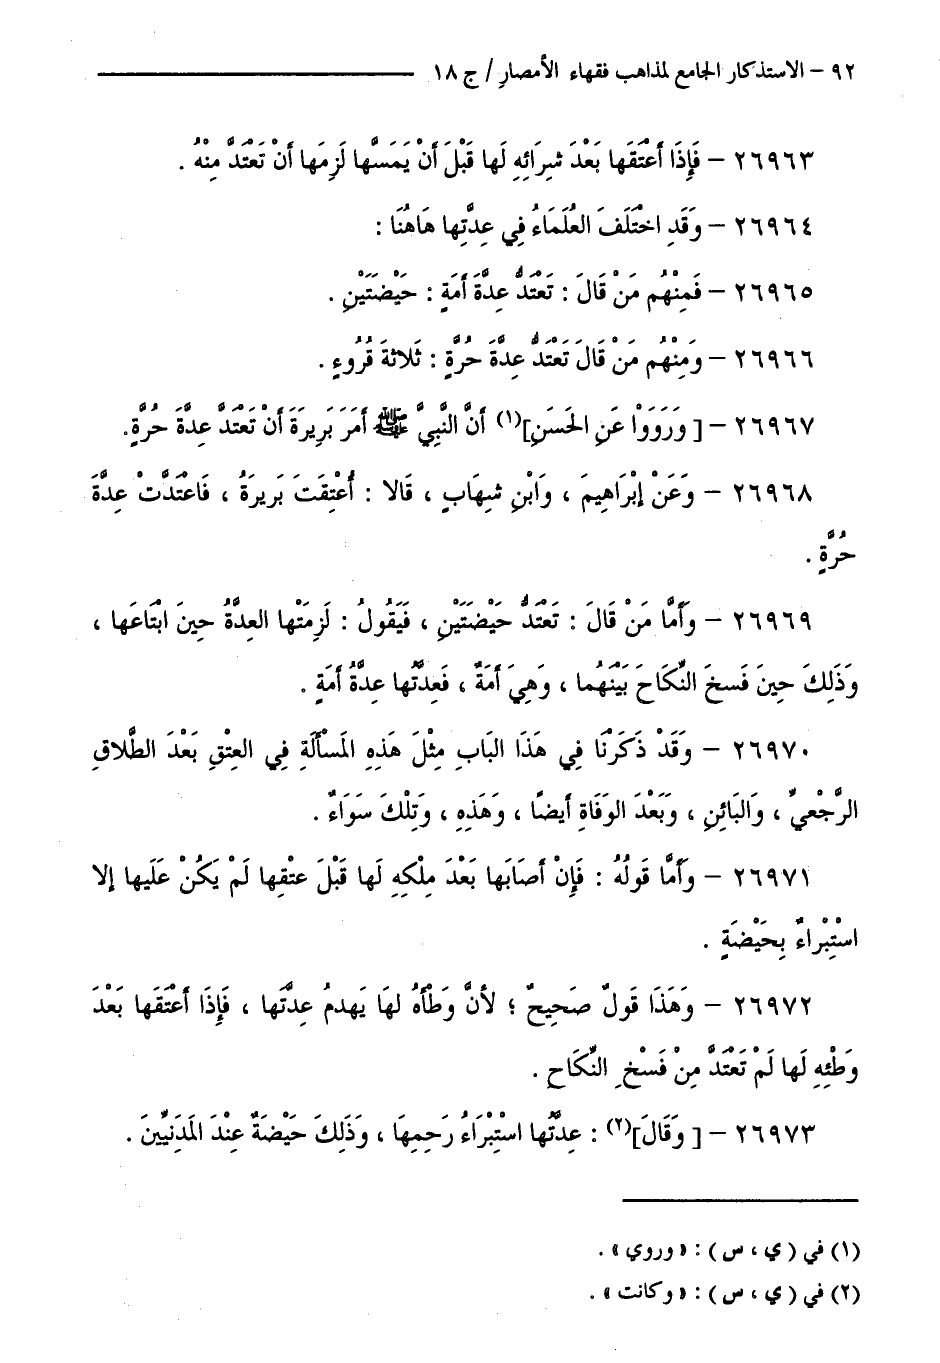 ٩٢ – الاستذكار الجامع لمذاهب فقهاء الأمصار / ج ١٨
٢٦٩٦٣ – فَإِذَا أَعْتَقَها بَعْدَ شِرَائِهِ لَها قَبْلَ أَنْ يَمَسَّها لَزِمَها أَنْ تَعْتَدَّ مِنْهُ .
٢٦٩٦٤ – وَقَدِ اخْتَلَفَ العُلَمَاءُ فِي عِدَّتِها هَاهُنَا :
٢٦٩٦٥ – فَمِنْهُم مَنْ قَالَ : تَعْتَدُّ عِدَّةَ أَمَةٍ : حَيْضَتَيْنِ .
٢٦٩٦٦ – وَمِنْهُم مَنْ قَالَ تَعْتَدُّ عِدَّةَ حُرَّةٍ : ثَلاثَةَ قُرُوءٍ .
٢٦٩٦٧ – [ وَرَوَوْا عَنِ الحَسَنِ](١) أَنَّ النَّبِيَّ ﷺ أَمَرَ بَرِيرَةَ أَنْ تَعْتَدَّ عِدَّةَ حُرَّةٍ.
٢٦٩٦٨ – وَعَنْ إِبْرَاهِيمَ ، وَابْنِ شِهَابٍ ، قَالا : أُعْتِقَتَ بَرِيرَةُ ، فَاعْتَدَّتْ عِدَّةَ
حُرَّةٍ .
٢٦٩٦٩ – وَأَمَّا مَنْ قَالَ : تَعْتَدُّ حَيْضَتَيْنِ ، فَيَقُولُ : لَزِمَتْها العِدَّةُ حِينَ ابْتَاعَها ،
وَذَلِكَ حِينَ فَسخَ النِّكَاحَ بَيْنَهُما ، وَهِيَ أَمَةٌ ، فَعِدَّتُها عِدَّةُ أَمَةٍ .
٢٦٩٧٠ – وَقَدْ ذَكَرْنَا فِي هَذَا البَابِ مِثْلَ هَذِهِ المَسْأَلَةِ فِي العِتْقِ بَعْدَ الطَّلاقِ
الرَّجْعيِّ ، وَالبَائِنِ ، وَبَعْدَ الوَفَاةِ أَيضًا ، وَهَذِهِ ، وَتِلْكَ سَوَاءٌ .
٢٦٩٧١ – وَأَمَّا قَولُهُ : فَإِنْ أَصَابَها بَعْدَ مِلْكِهِ لَها قَبْلَ عِتْقِها لَمْ يَكُنْ عَلَيها إلا
اسْتِبْراءٌ بِحَيْضَةٍ .
٢٦٩٧٢ – وَهَذَا قَولٌ صَحِيحٌ ؛ لأنَّ وَطْأَهُ لهَا يَهدمُ عِدَّتَها ، فَإِذَا أَعْتَقَها بَعْدَ
وَطْئِهِ لَها لَمْ تَعْتَدَّ مِنْ فَسْخِ النِّكَاحِ .
٢٦٩٧٣ – [ وَقَالَ](٢) : عِدَّتُها اسْتِبْرَاءُ رَحِمِهَا ، وَذَلِكَ حَيْضَةٌ عِنْدَ المَدَنِيِّينَ .
(١) في ( ي ، س ) : « وروي » .
(٢) في ( ي ، س ) : « وكانت » .